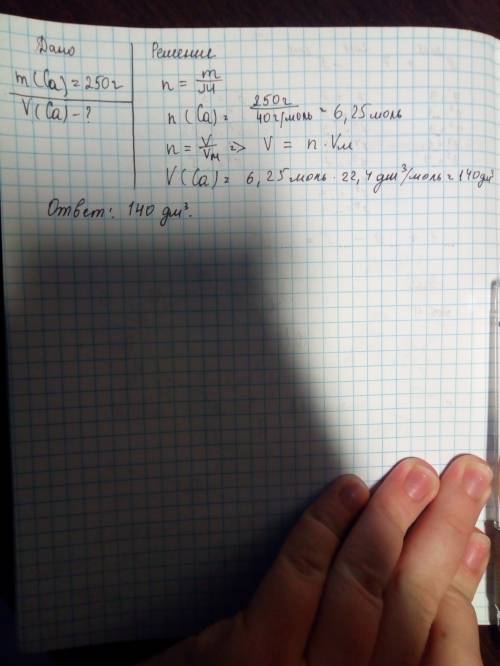 Дано
Решение
m(Ca) = 250г
V(Ca) - ?
n = m/M
n(Ca) = 250г/40г/моль = 6,25 моль
n = V/Vм => V = n · Vм
V(Ca) = 6,25 моль · 22,4 дм³/моль = 140 дм³
Ответ: 140 дм³.